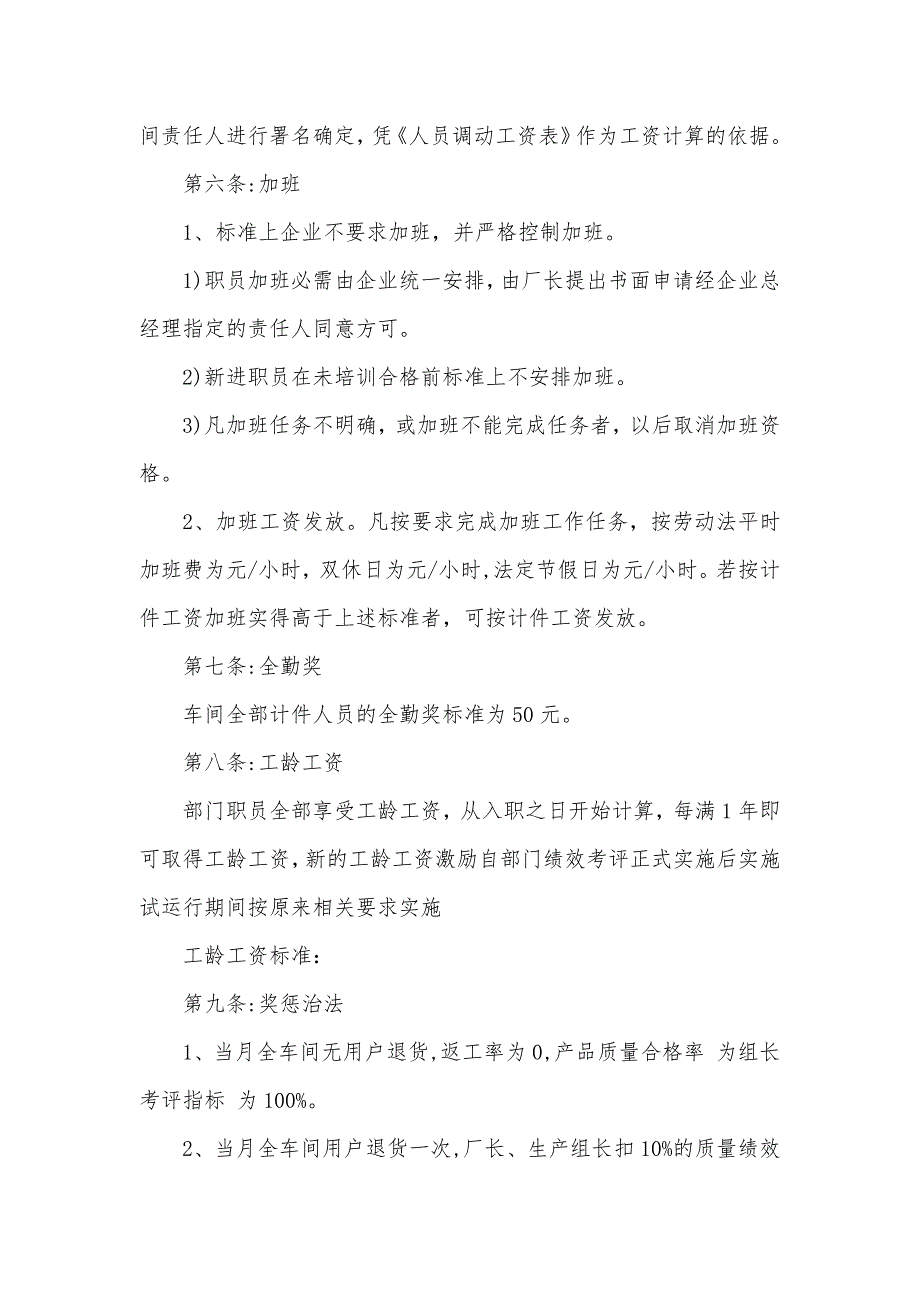 间责任人进行署名确定，凭《人员调动工资表》作为工资计算的依据。
第六条:加班
1、标准上企业不要求加班，并严格控制加班。
1)职员加班必需由企业统一安排，由厂长提出书面申请经企业总
经理指定的责任人同意方可。
2)新进职员在未培训合格前标准上不安排加班。
3)凡加班任务不明确，或加班不能完成任务者，以后取消加班资
格。
2、加班工资发放。凡按要求完成加班工作任务，按劳动法平时
加班费为元/小时，双休日为元/小时,法定节假日为元/小时。若按计
件工资加班实得高于上述标准者，可按计件工资发放。
第七条:全勤奖
车间全部计件人员的全勤奖标准为50元。
第八条:工龄工资
部门职员全部享受工龄工资，从入职之日开始计算，每满1年即
可取得工龄工资，新的工龄工资激励自部门绩效考评正式实施后实施
试运行期间按原来相关要求实施
工龄工资标准：
第九条:奖惩治法
1、当月全车间无用户退货,返工率为0,产品质量合格率 为组长
考评指标 为100%。
2、当月全车间用户退货一次,厂长、生产组长扣10%的质量绩效